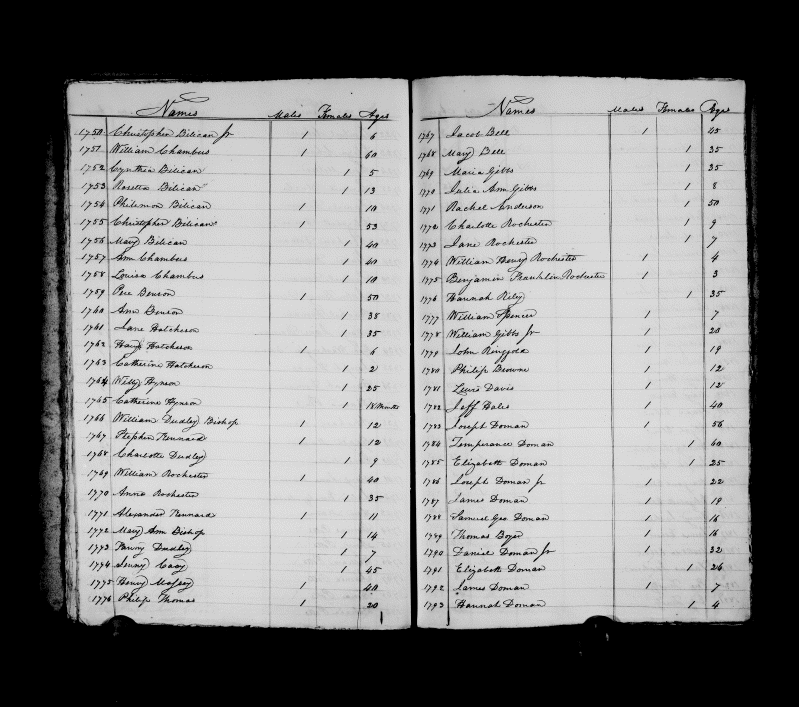 Names Males Females Ages
1750 Christopher Bilican Jr 1 6
1751 William Chambers 1 60
1752 Cynthia Bilican 1 5
1753 Rosetta Bilican 1 13
1754 Philemon Bilican 1 10
1755 Christopher Bilican 1 53
1756 Mary Bilican 1 40
1757 Ann Chambers 1 40
1758 Louisa Chambers 1 10
1759 Pere Benson 1 50
1760 Ann Benson 1 38
1761 Jane Hatcherson 1 35
1762 Hatcherson 1 6
1763 Catherine Hatcherson 1 2
1764 Hynson 1 25
1765 Catherine Hynson 1 18 Months
1766 William Dudley Bishop 1 12
1767 Stephen Kennard 1 12
1768 Charlotte Dudley 1 9
1769 William Rochester 1 40
1770 Anna Rochester 1 35
1771 Alexander Kennard 1 11
1772 Mary Ann Bishop 1 14
1773 Dudley 1 7
1774 Jenny 1 45
1775 Henry Massey 1 40
1776 Philip Thomas 1 20
Names Males Females Ages
1767 Jacob Bell 1 45
1768 Mary Bell 1 35
1769 Maria Gibbs 1 35
1770 Julia Ann Gibbs 1 8
1771 Rachel Anderson 1 50
1772 Charlotte Rochester 1 9
1773 Jane Rochester 1 7
1774 William Henry Rochester 1 4
1775 Benjamin Franklin Rochester 1 3
1776 Hannah Riley 1 35
1777 William Spencer 1 7
1778 William Gibbs Jr 1 20
1779 John Ringgold 1 19
1780 Philip Browne 1 12
1781 Lewis Davis 1 12
1782 Jeff Hales 1 40
1783 Joseph Doman 1 56
1784 Temperance Doman 1 60
1785 Elizabeth Doman 1 25
1786 Joseph Doman Jr 1 22
1787 James Doman 1 19
1788 Samuel Geo Doman 1 16
1789 Thomas Boyer 1 16
1790 Daniel Doman Jr 1 32
1791 Elizabeth Doman 1 26
1792 James Doman 1 7
1793 Hannah Doman 1 4